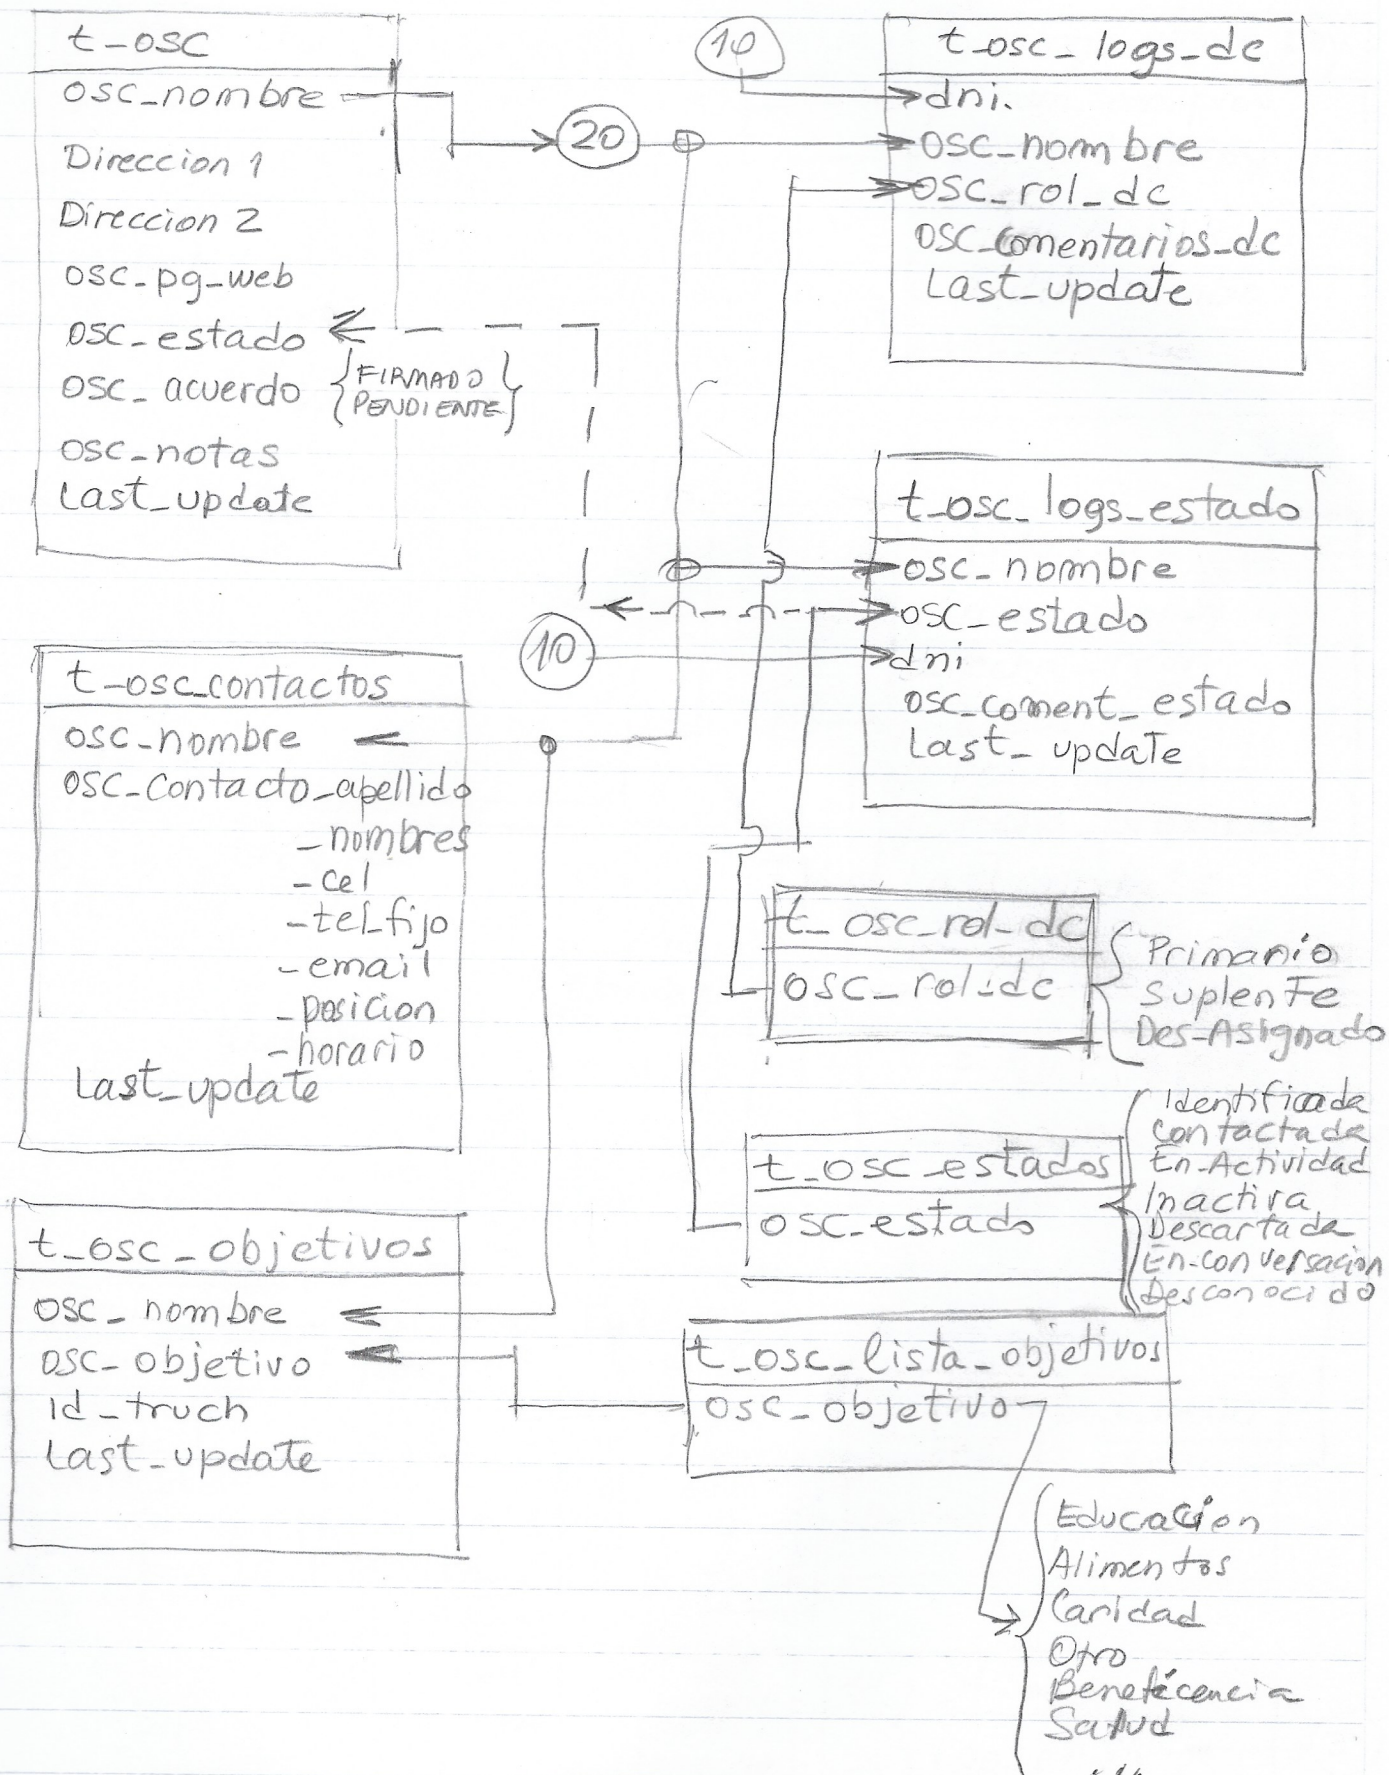 t_osc
osc_nombre
Direccion 1
Direccion 2
osc_pg_web
osc_estado
osc_acuerdo { FIRMADO }
{ PENDIENTE }
osc_notas
Last_update
20
10
t_osc_logs_dc
dni.
osc_nombre
osc_rol_dc
osc_comentarios_dc
Last_update
t_osc_logs_estado
osc_nombre
osc_estado
10
dni
osc_coment_estado
Last_update
t_osc_contactos
osc_nombre
osc_contacto_apellido
_nombres
-cel
-tel_fijo
-email
-posicion
-horario
Last_update
t_osc_rol_dc
osc_rol_dc
Primario
Suplente
Des-Asignado
t_osc_estados
osc_estado
Identificada
Contactada
En-Actividad
Inactiva
Descartada
En-conversacion
Desconocido
t_osc_objetivos
osc_nombre
osc_objetivo
id_truch
Last_update
t_osc_lista_objetivos
osc_objetivo
Educacion
Alimentos
Caridad
Otro
Benefécencia
Salud